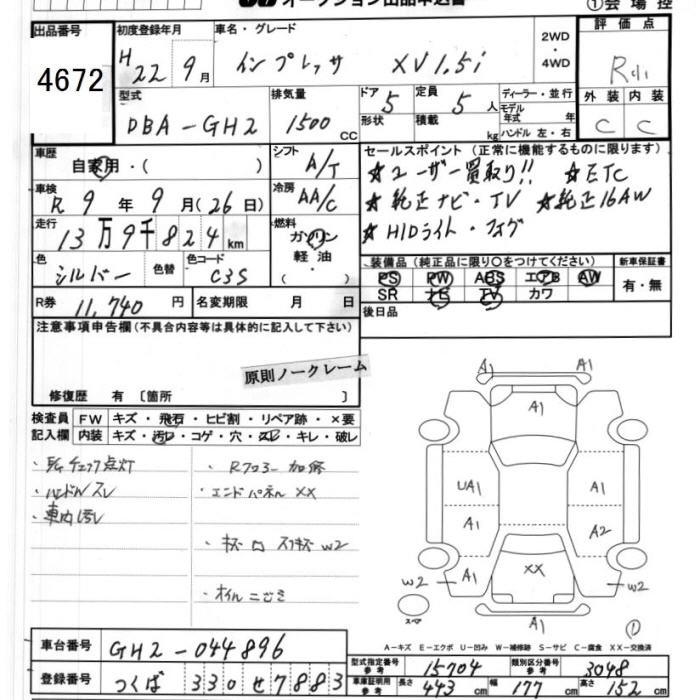 オークション出品申込書
①会場控
出品番号
4672
初度登録年月
H22 9月
車名・グレード
インプレッサ XV1.5i
2WD・4WD
評価点
外装 内装
C C
型式
DBA-GH2
排気量
1500 CC
ドア 5
形状
定員 5 人
積載 kg
ディーラー・並行
モデル年式 年
ハンドル 左・右
車歴
自家用・( )
シフト
A/T
車検
R9年9月(26日)
冷房
AA/C
走行
13万9千824km
燃料
ガソリン
軽油
( )
色
シルバー
色替
色コード
C3S
R券
11,740 円
名変期限 月 日
セールスポイント(正常に機能するものに限ります)
☆ユーザー買取り!! ☆ETC
☆純正ナビ・TV ☆純正16AW
☆HIDライト・フォグ
装備品(純正品に限り○をつけてください)
PS PW ABS エアB AW
SR ナビ TV カワ
新車保証書
有・無
後日品
注意事項申告欄(不具合内容等は具体的に記入して下さい)
原則ノークレーム
修復歴 有〔箇所 〕
検査員記入欄
FW キズ・飛石・ヒビ割・リペア跡・×要
内装 キズ・汚レ・コゲ・穴・スレ・キレ・破レ
・チェック点灯
・ハンドルスレ
・車内汚レ
・Rフロアー加修
・エンドパネルXX
・オイルニジミ
A1 A1
A1
UA1 A1
A1 A2
XX
W2 A1 A1 W2
A1
スペア
A-キズ E-エクボ U-凹み W-補修跡 S-サビ C-腐食 XX-交換済
車台番号
GH2-044896
登録番号
つくば 330 せ 7883
型式指定番号 参考 15704
類別区分番号 参考 3048
車庫証明用 参考 長さ 443cm 幅 177cm 高さ 152cm